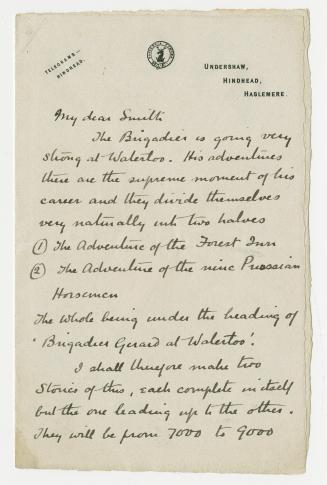 TELEGRAMS—
HINDHEAD.
UNDERSHAW,
HINDHEAD,
HASLEMERE.
My dear Smith
The Brigadier is going very
strong at Waterloo. His adventures
there are the supreme moment of his
career and they divide themselves
very naturally into two halves
(1) The Adventure of the Forest Inn
(2) The Adventure of the nine Prussian
Horsemen
The whole being under the heading of
'Brigadier Gerard at Waterloo'.
I shall therefore make two
stories of this, each complete in itself
but the one leading up to the other.
They will be from 7000 to 9000